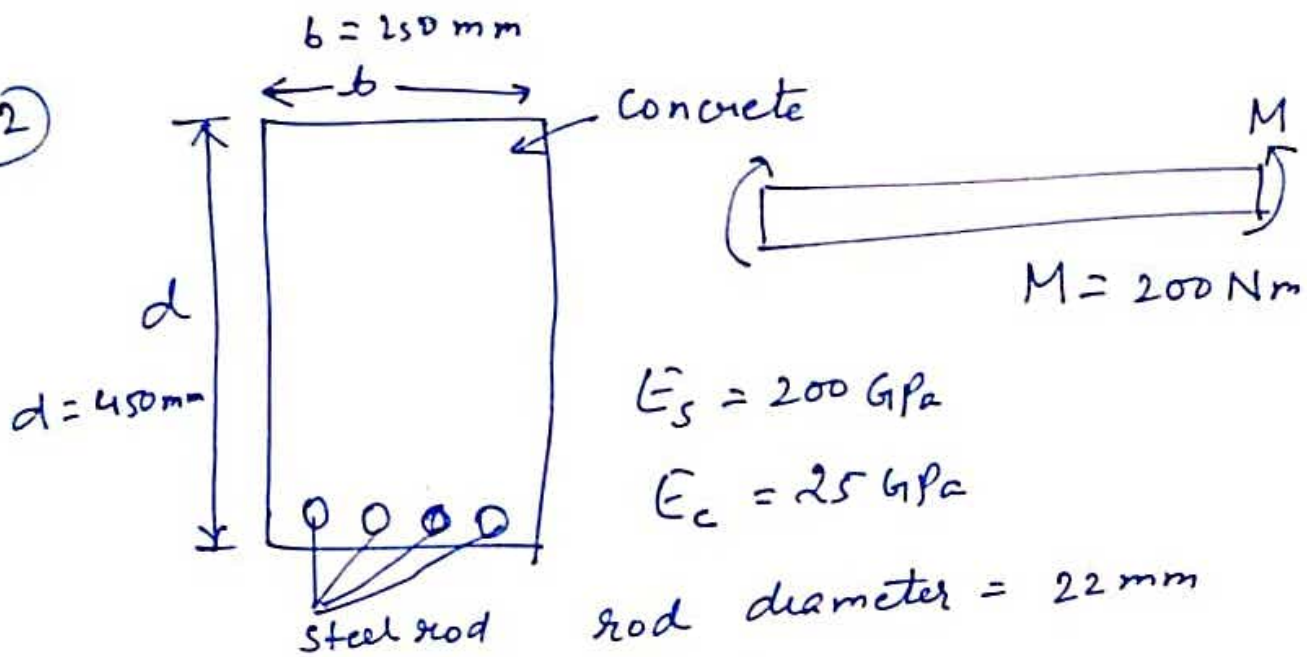 2
b = 250 mm
b
Concrete
M
d
d = 450mm
M = 200 Nm
Es = 200 GPa
Ec = 25 GPa
Steel rod
rod diameter = 22 mm